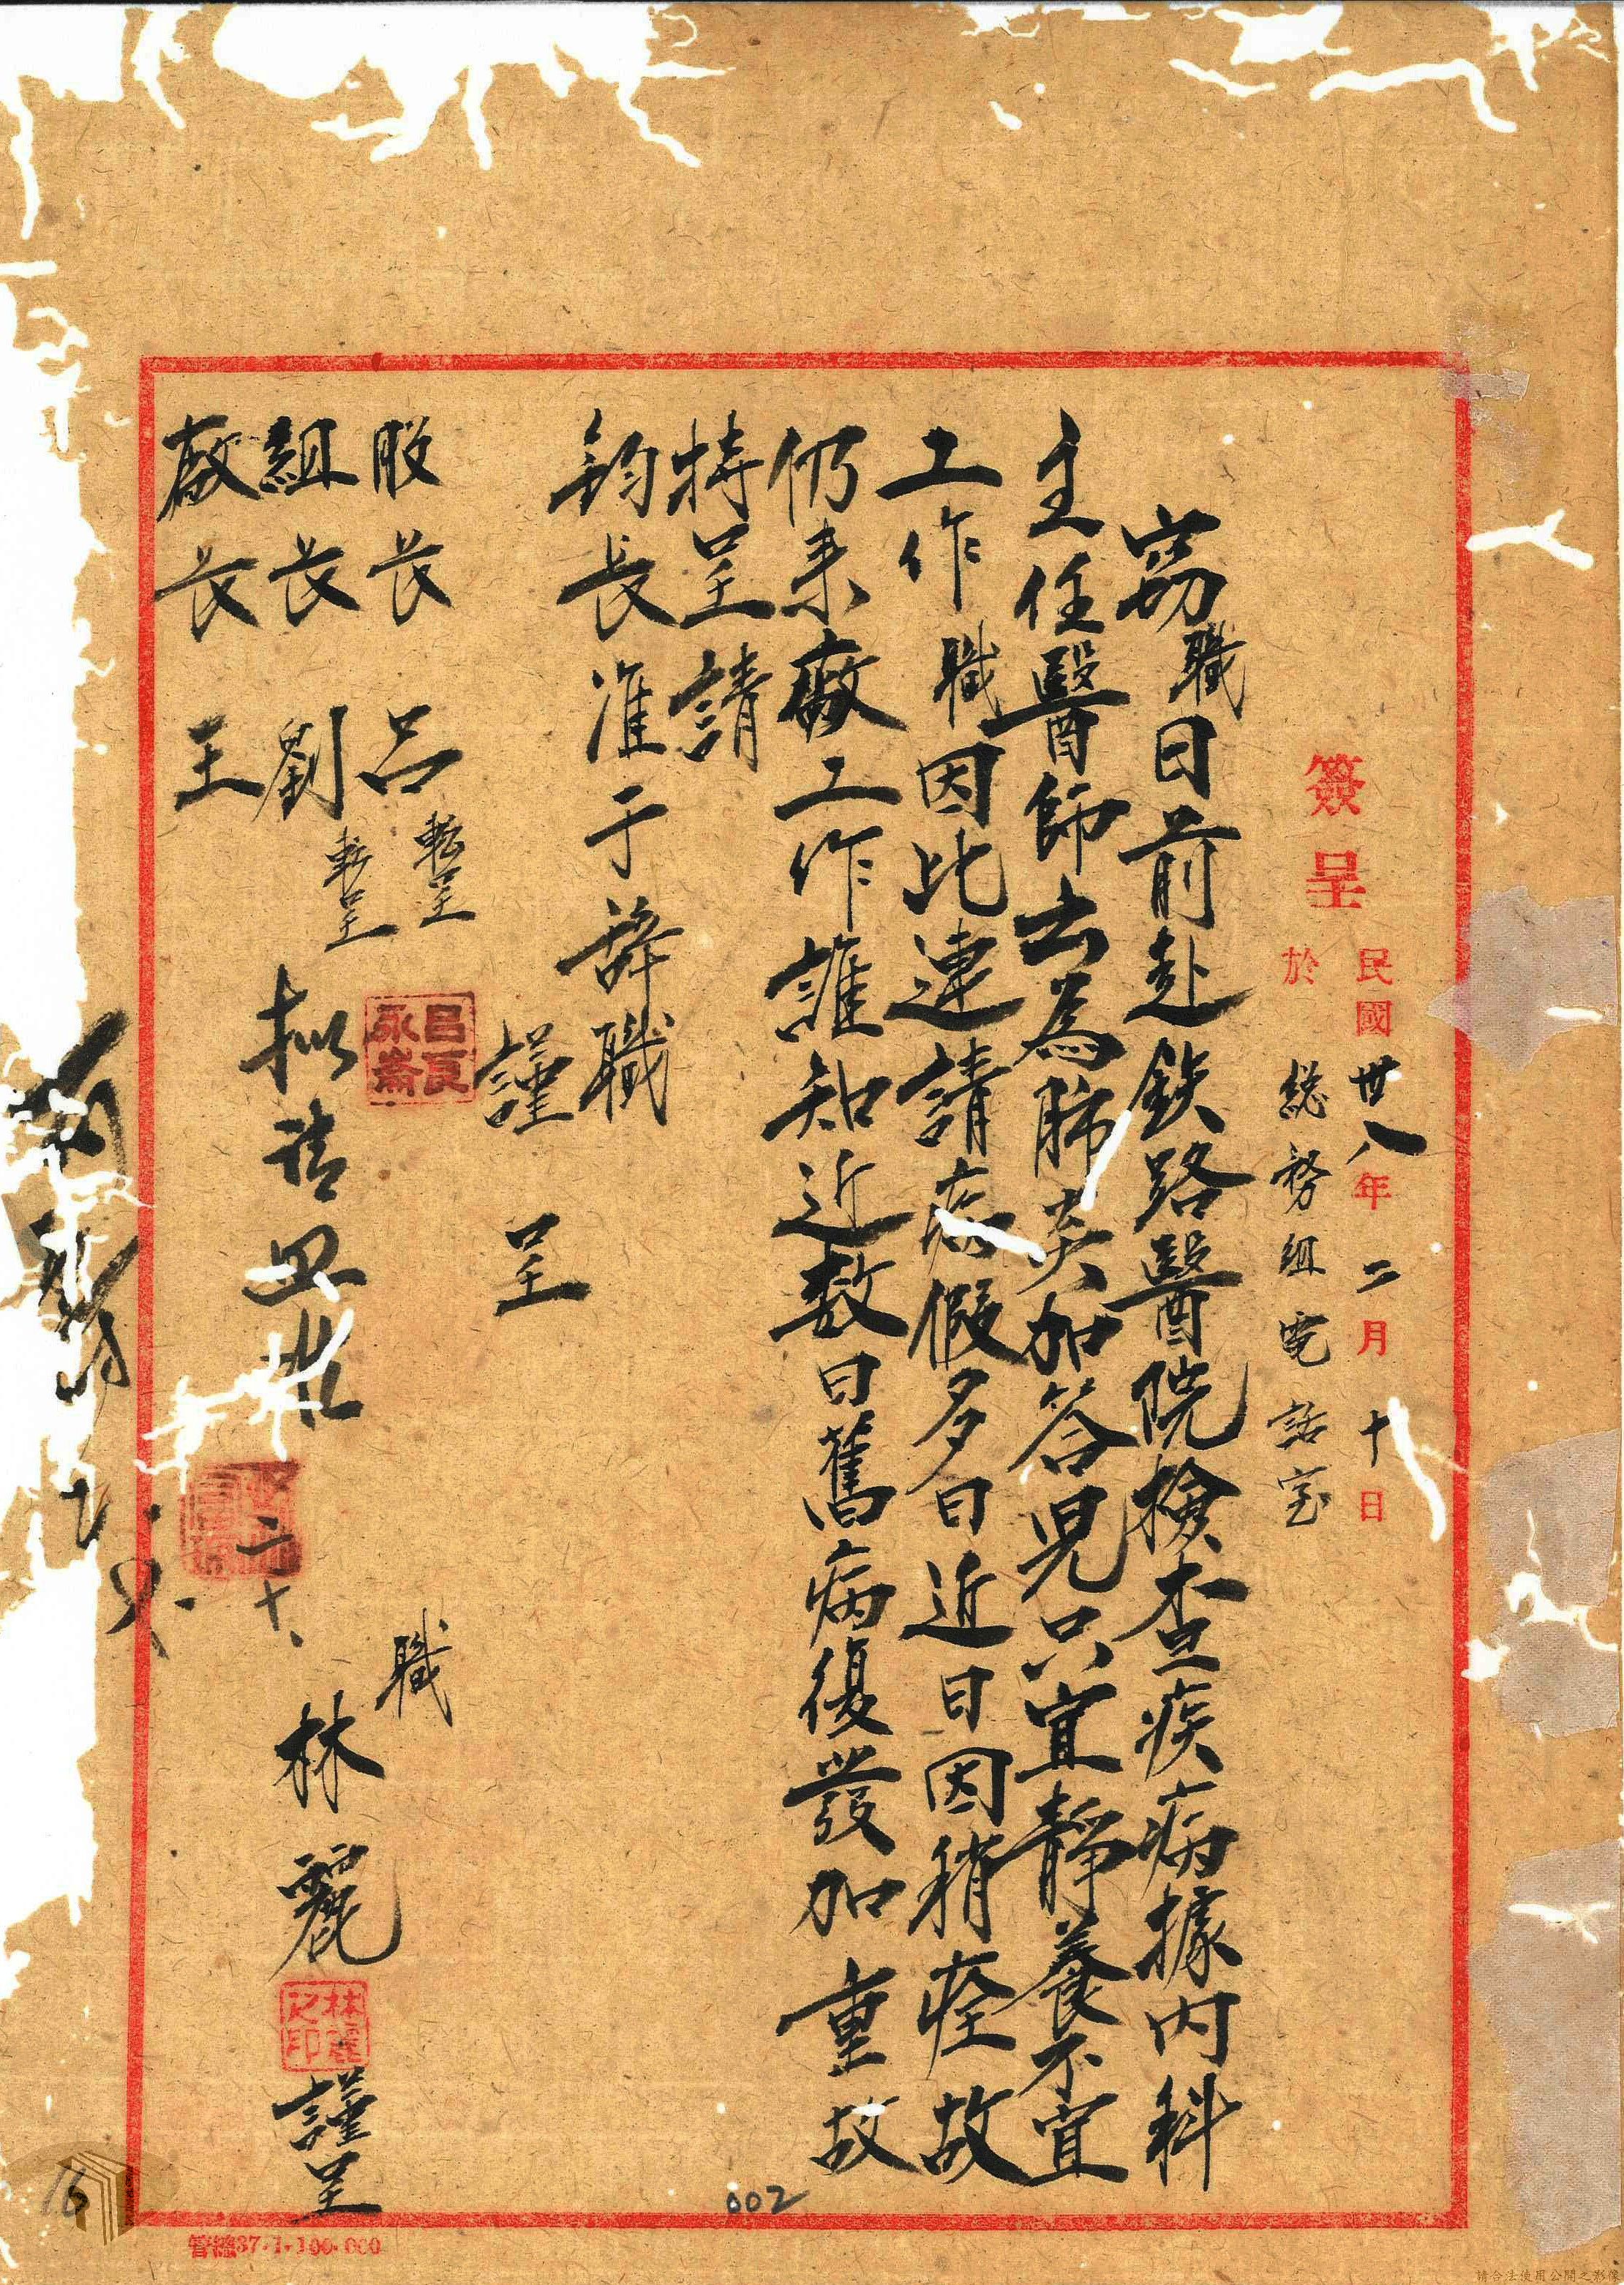 簽呈 民國卅八年二月十日
於 總務組電話室
竊職日前赴鉄路醫院檢查疾病據內科
主任醫師云為肺炎加答兒只宜靜養不宜
工作職因此連請病假多日近日因稍痊故
仍來廠工作誰知近数日舊病復發加重故
特呈請
鈞長准于辞職
謹呈
股長呂轉呈
組長劉轉呈
廠長王
呂良永崙
拟請照准
二、十、
職林麗謹呈
林麗之印
002
16
管總37·1·100·000
請合法使用公開之影像